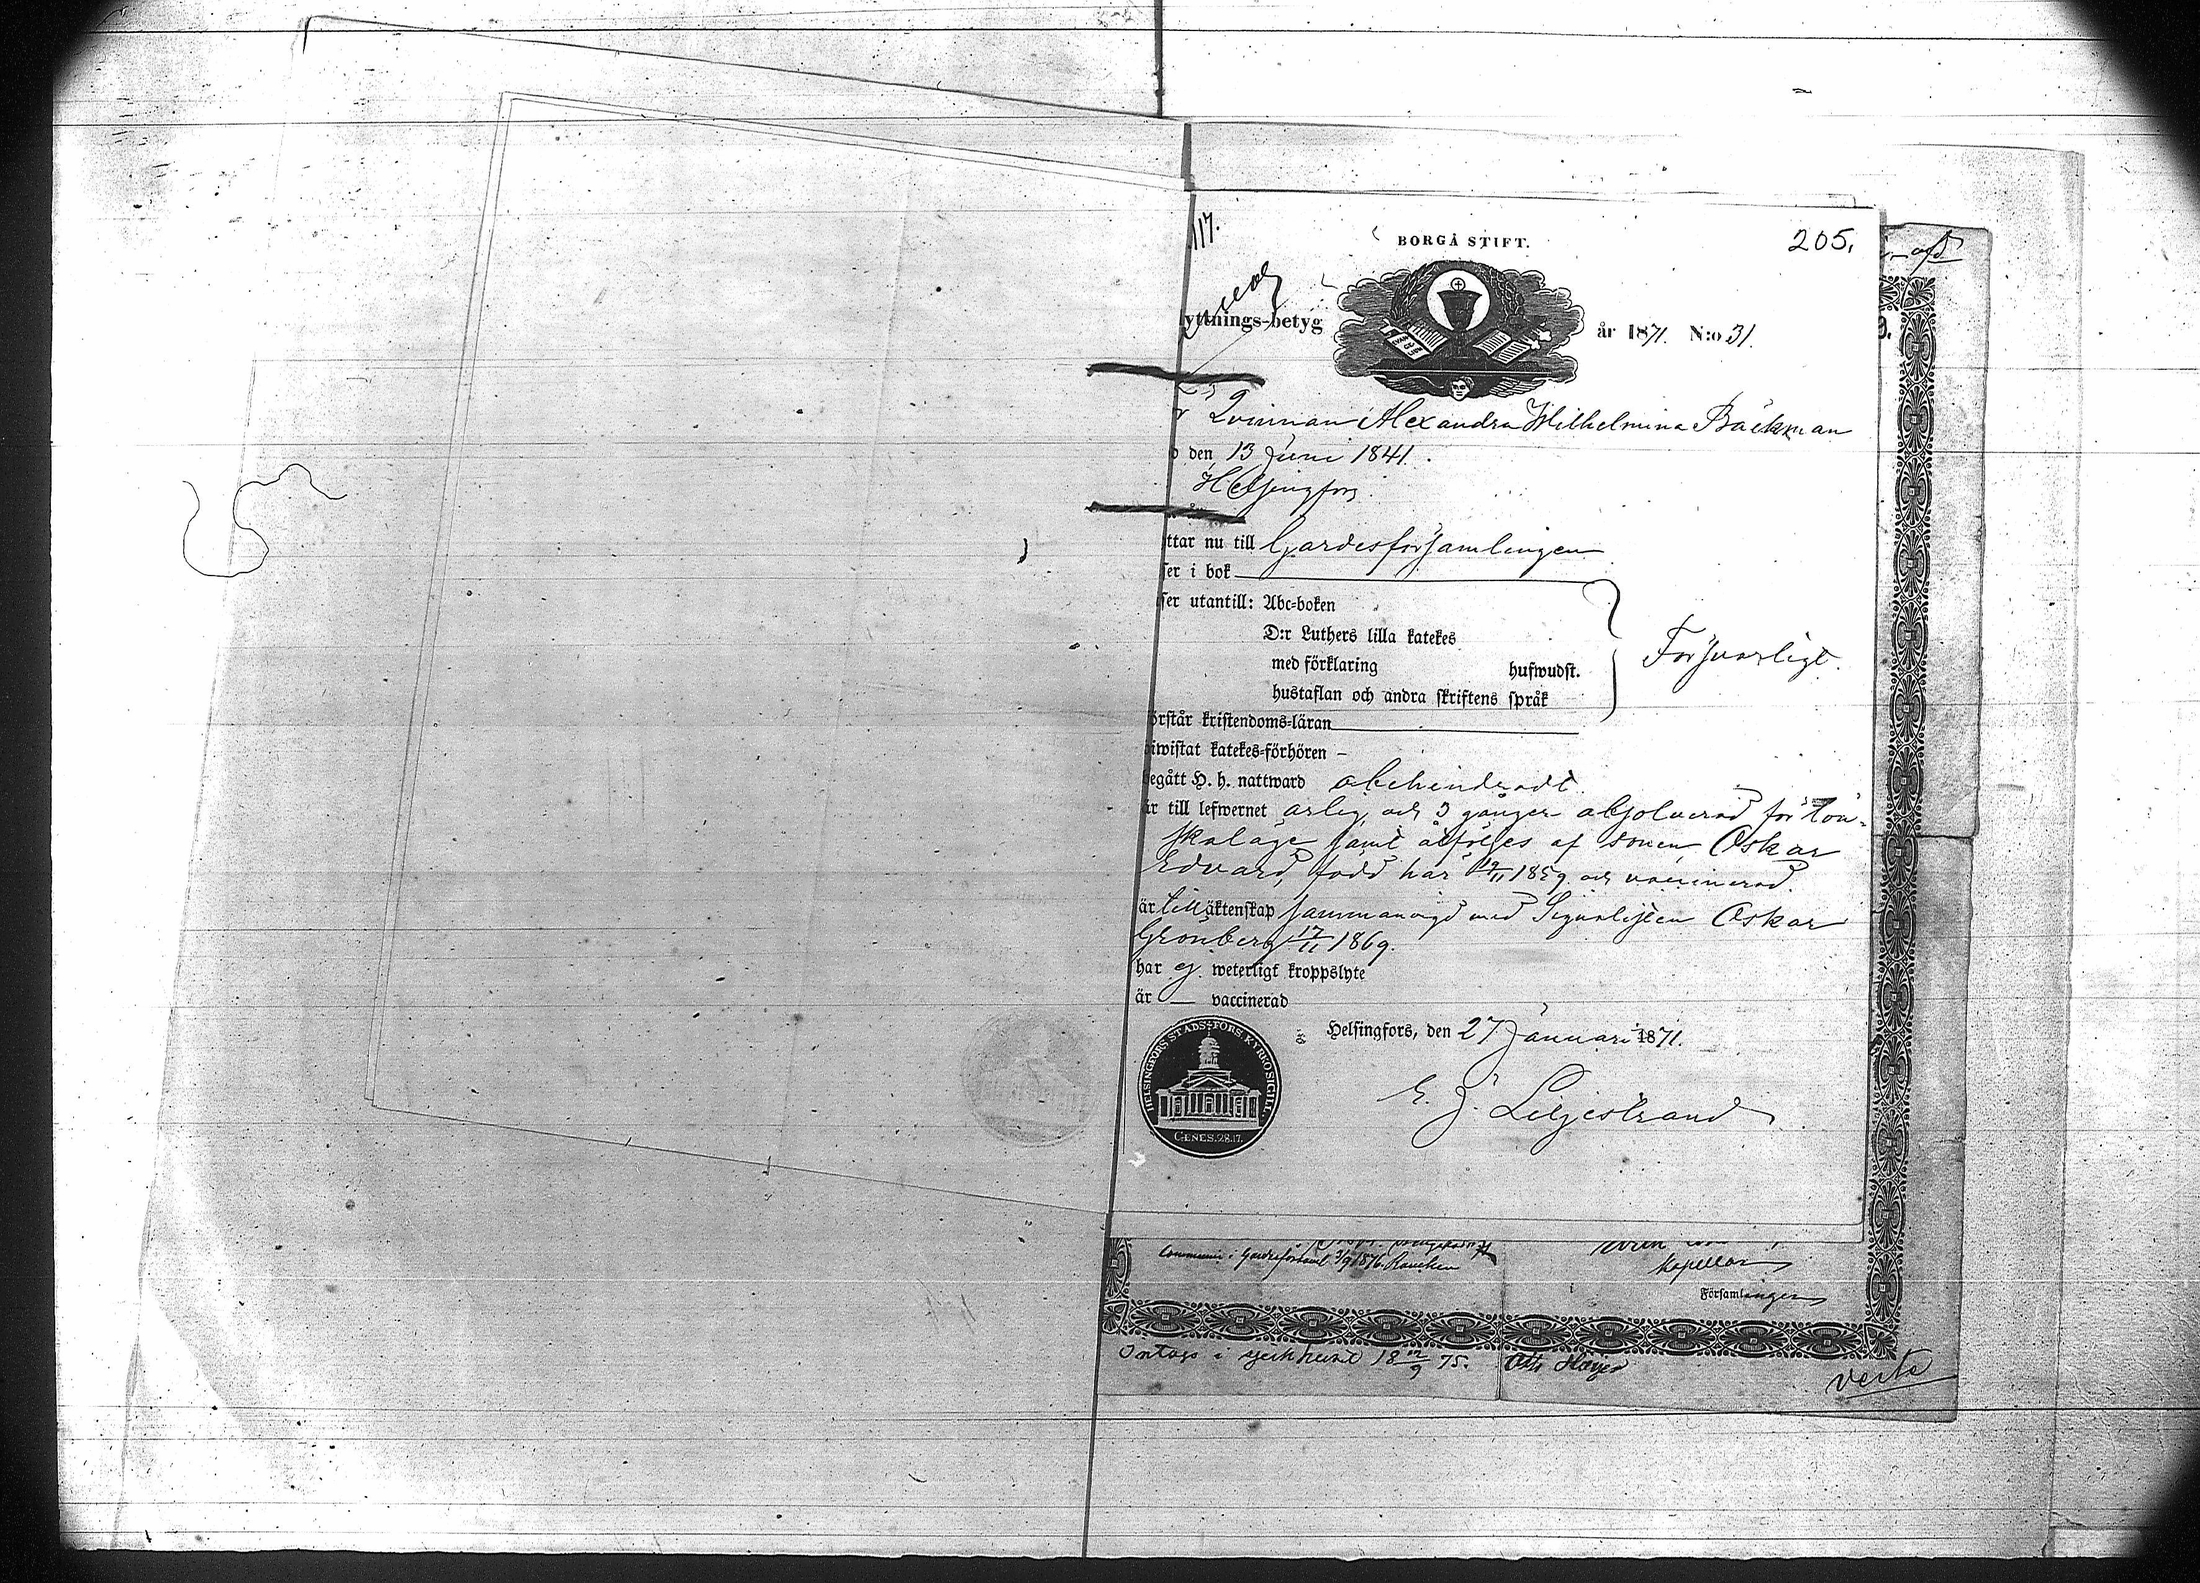 117.
BORGÅ STIFT.
205.
yttnings-betyg
år 1871. N:o 31.
EVAN
GE
LIUM
r Qvinnan Alexandra Wilhelmina Bäckman
d den 13 Juni 1841.
Helsingfors
ttar nu till Gardesförsamlingen
ser i bok
ser utantill: Abc-boken
D:r Luthers lilla katekes
med förklaring hufwudst.
hustaflan och andra skriftens språk
Försvarligt.
örstår kristendoms-läran
iwistat katekes-förhören –
egått H. h. nattward obehindradt.
är till lefwernet ärlig, och 3 gånger absolverad för lön-
skaläge samt åtföljes af sonen Oskar
Edvard, född här 19/11 1859 och vaccinerad.
är till äktenskap sammanvigd med Signalisten Oskar
Grönberg 17/11 1869.
har ej weterligt kroppslyte
är — vaccinerad
Helsingfors, den 27 Januari 1871.
HELSINGFORS. STADS-FÖRS. KYRKOSIGILL.
GENES. 28.17.
E. J. Liljestrand
Commun. i Gardesförsaml. 3/9 1876.
Kapellan
Församlingen
Intags i kyrkh 18 12/9 75.
verte